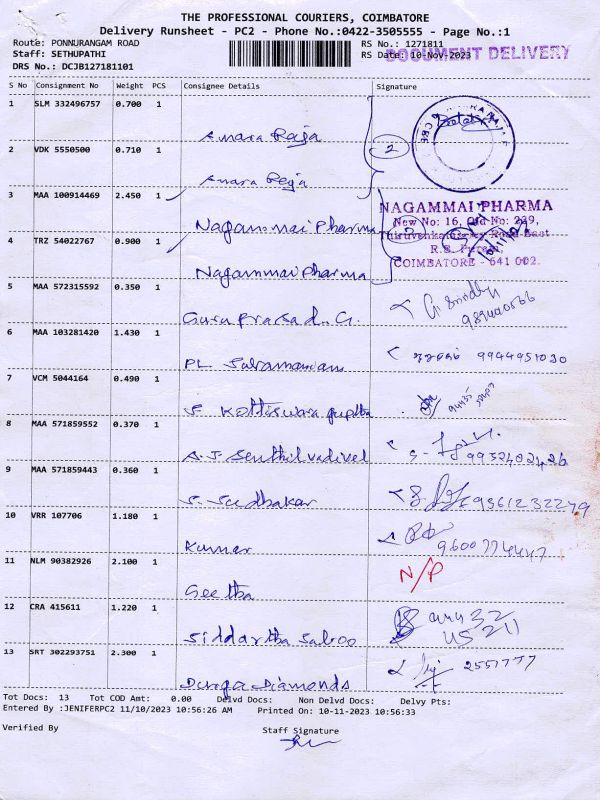 THE PROFESSIONAL COURIERS, COIMBATORE
Delivery Runsheet - PC2 - Phone No.:0422-3505555 - Page No.:1
Route: PONNURANGAM ROAD
RS No.: 1271811
Staff: SETHUPATHI
RS Date: 10-Nov-2023
DOCUMENT DELIVERY
DRS No.: DCJB127181101
S No Consignment No Weight PCS Consignee Details Signature
1 SLM 332496757 0.700 1 Amara Raja
2 VDK 5550500 0.710 1 Amara Raja 2
3 MAA 100914469 2.450 1 Nagammai Pharma
NAGAMMAI PHARMA
New No: 16, Old No: 239,
Thiruvenkatasamy Road East
R.S. Puram,
COIMBATORE - 641 002.
4 TRZ 54022767 0.900 1 Nagammai Pharma
5 MAA 572315592 0.350 1 Guru Prasad. G.
6 MAA 103281420 1.430 1 PL Subramaniam 9944951030
7 VCM 5044164 0.490 1 S Kottiswara guptha
8 MAA 571859552 0.370 1 A.J. Senthilvadivel 9932402426
9 MAA 571859443 0.360 1 S. Sudhakar 9361232279
10 VRR 107706 1.180 1 Kumar 9600774447
11 NLM 90382926 2.100 1 Geetha N/P
12 CRA 415611 1.220 1 Siddartha Saboo
13 SRT 302293751 2.300 1 Durga Diamonds 2551777
Tot Docs: 13 Tot COD Amt: 0.00 Delvd Docs: Non Delvd Docs: Delvy Pts:
Entered By :JENIFERPC2 11/10/2023 10:56:26 AM Printed On: 10-11-2023 10:56:33
Verified By Staff Signature